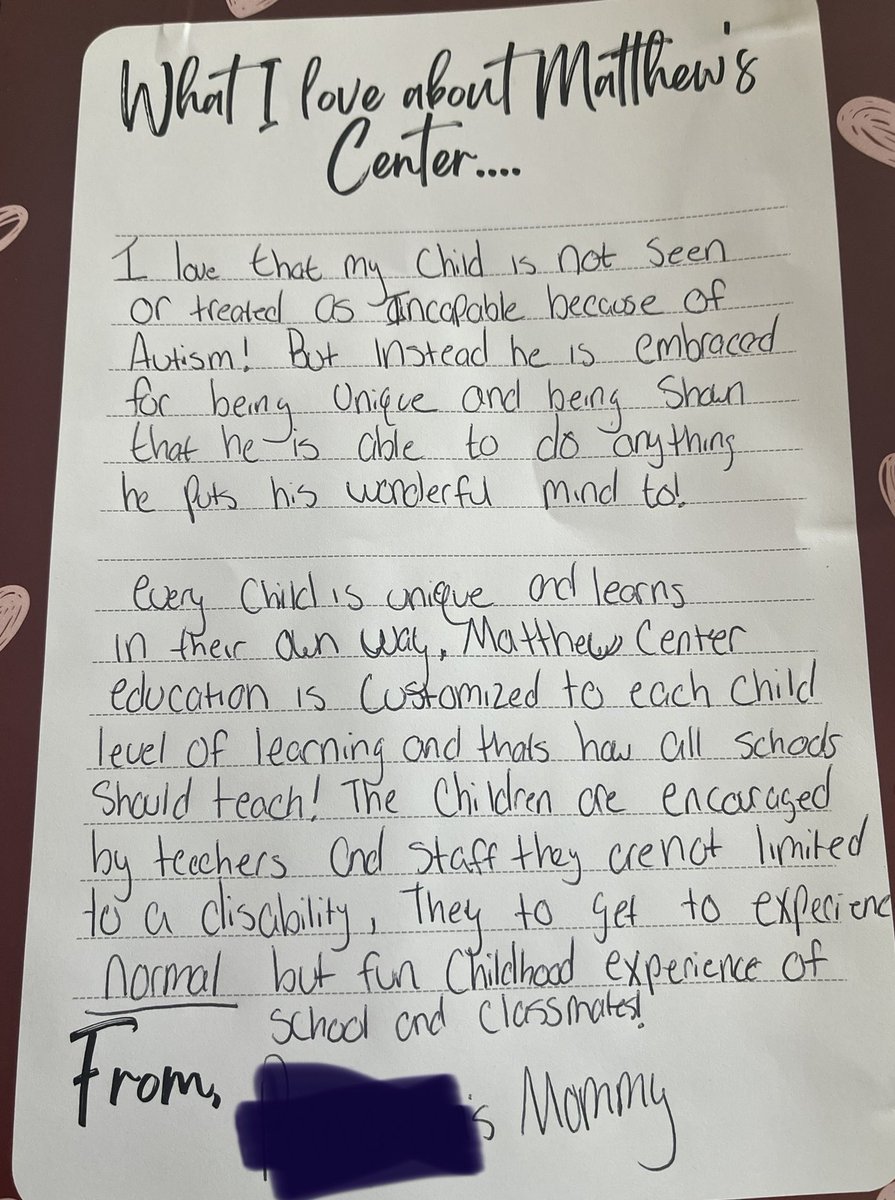 What I love about Matthew's
Center....
I love that my Child is not seen
or treated as Incapable because of
Autism! But instead he is embraced
for being Unique and being Shown
that he is able to do anything
he puts his wonderful mind to!
every Child is unique and learns
in their own way, Matthew Center
education is Customized to each Child
level of learning and thats how all schools
should teach! The Children are encouraged
by teachers and staff they are not limited
to a disability, They to get to experienc
normal but fun Childhood experience of
school and classmates!
From,
's Mommy